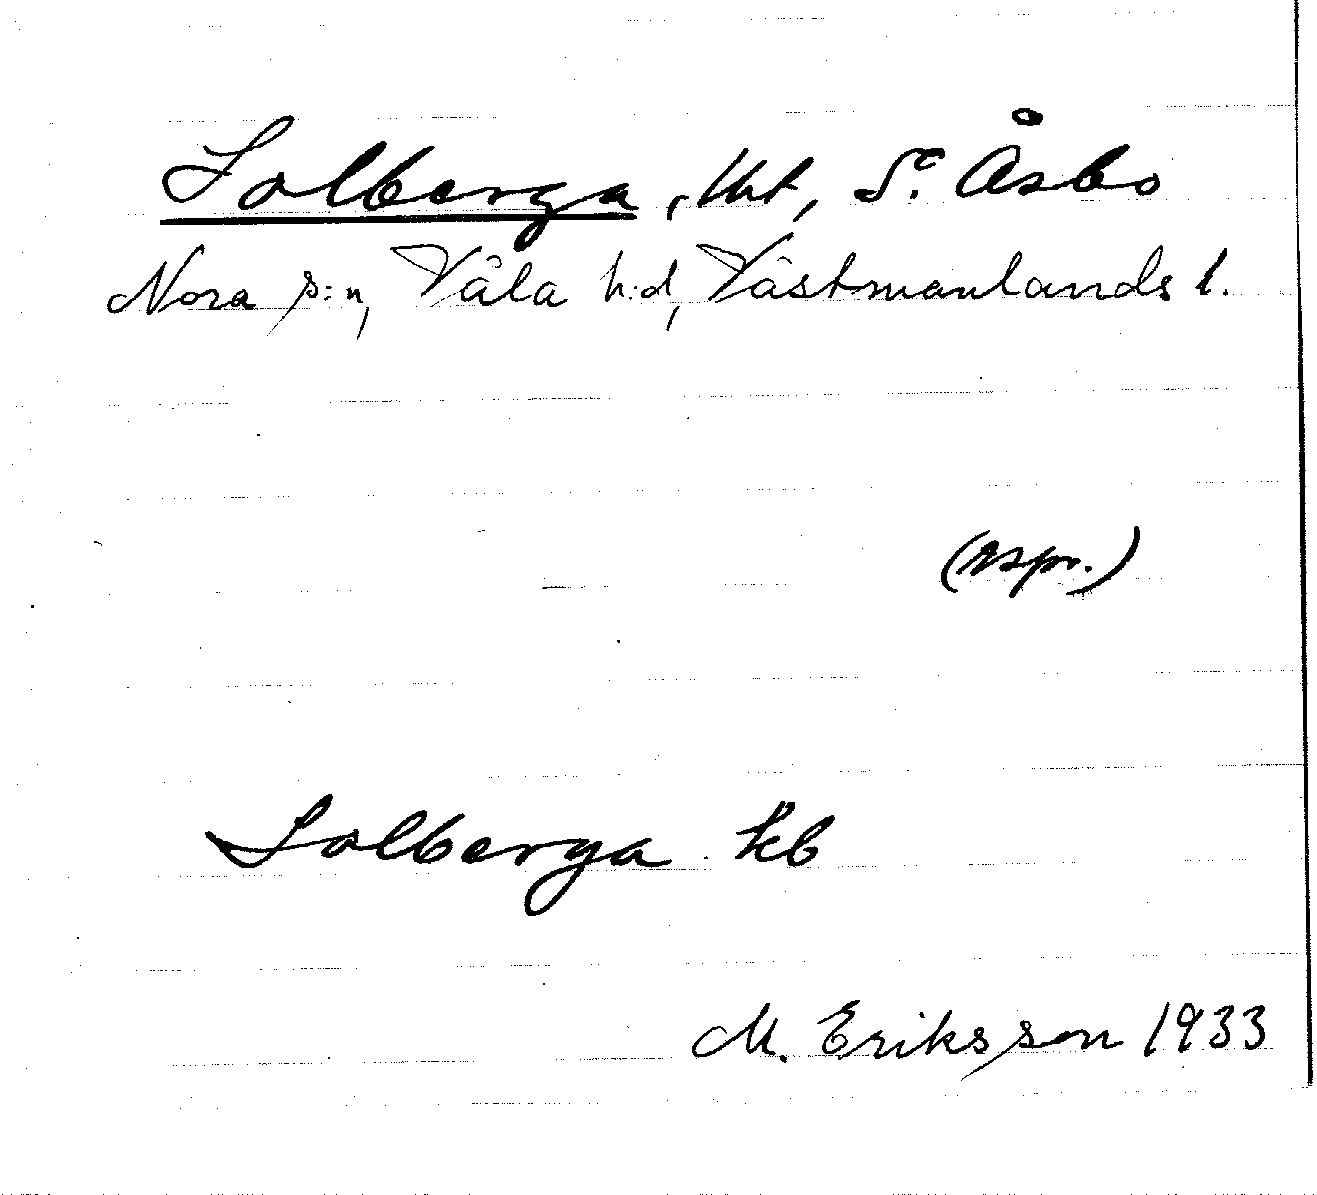 Solberga, lht, Sö. Åsbo
Nora s:n, Våla h:d, Västmanlands l.
(rspr.)
Solberga kb
M. Eriksson 1933